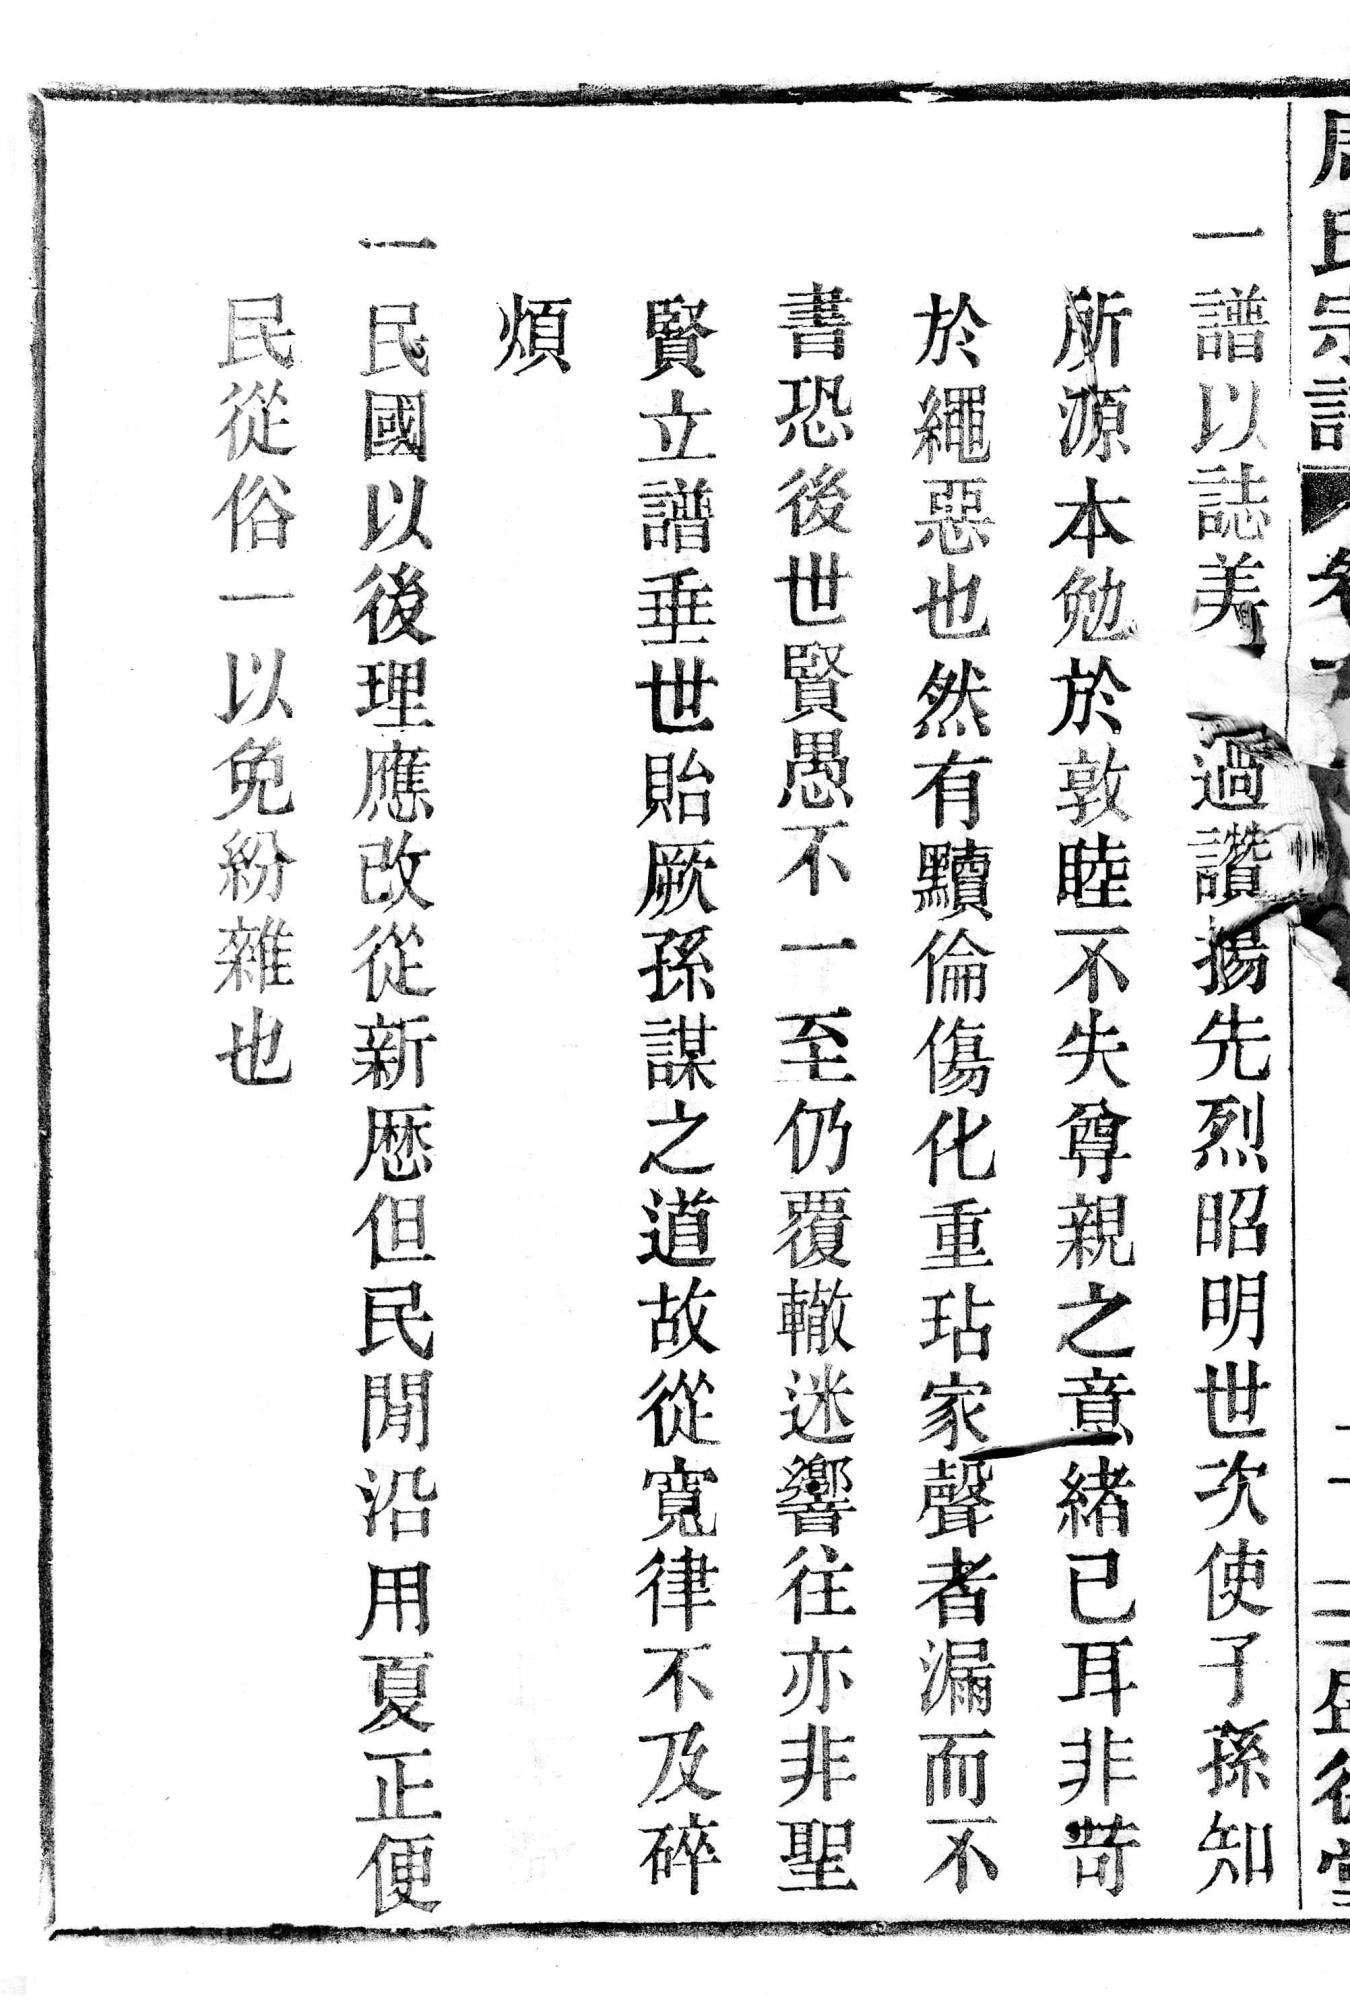 周氏宗譜
一譜以誌美過讚揚先烈昭明世次使子孫知
所源本勉於敦睦不失尊親之意緒已耳非苛
於繩惡也然有黷倫傷化重玷家聲者漏而不
書恐後世賢愚不一至仍覆轍迷響往亦非聖
賢立譜垂世貽厥孫謀之道故從寬律不及碎
煩
一民國以後理應改從新厯但民閒沿用夏正便
民從俗一以免紛雜也